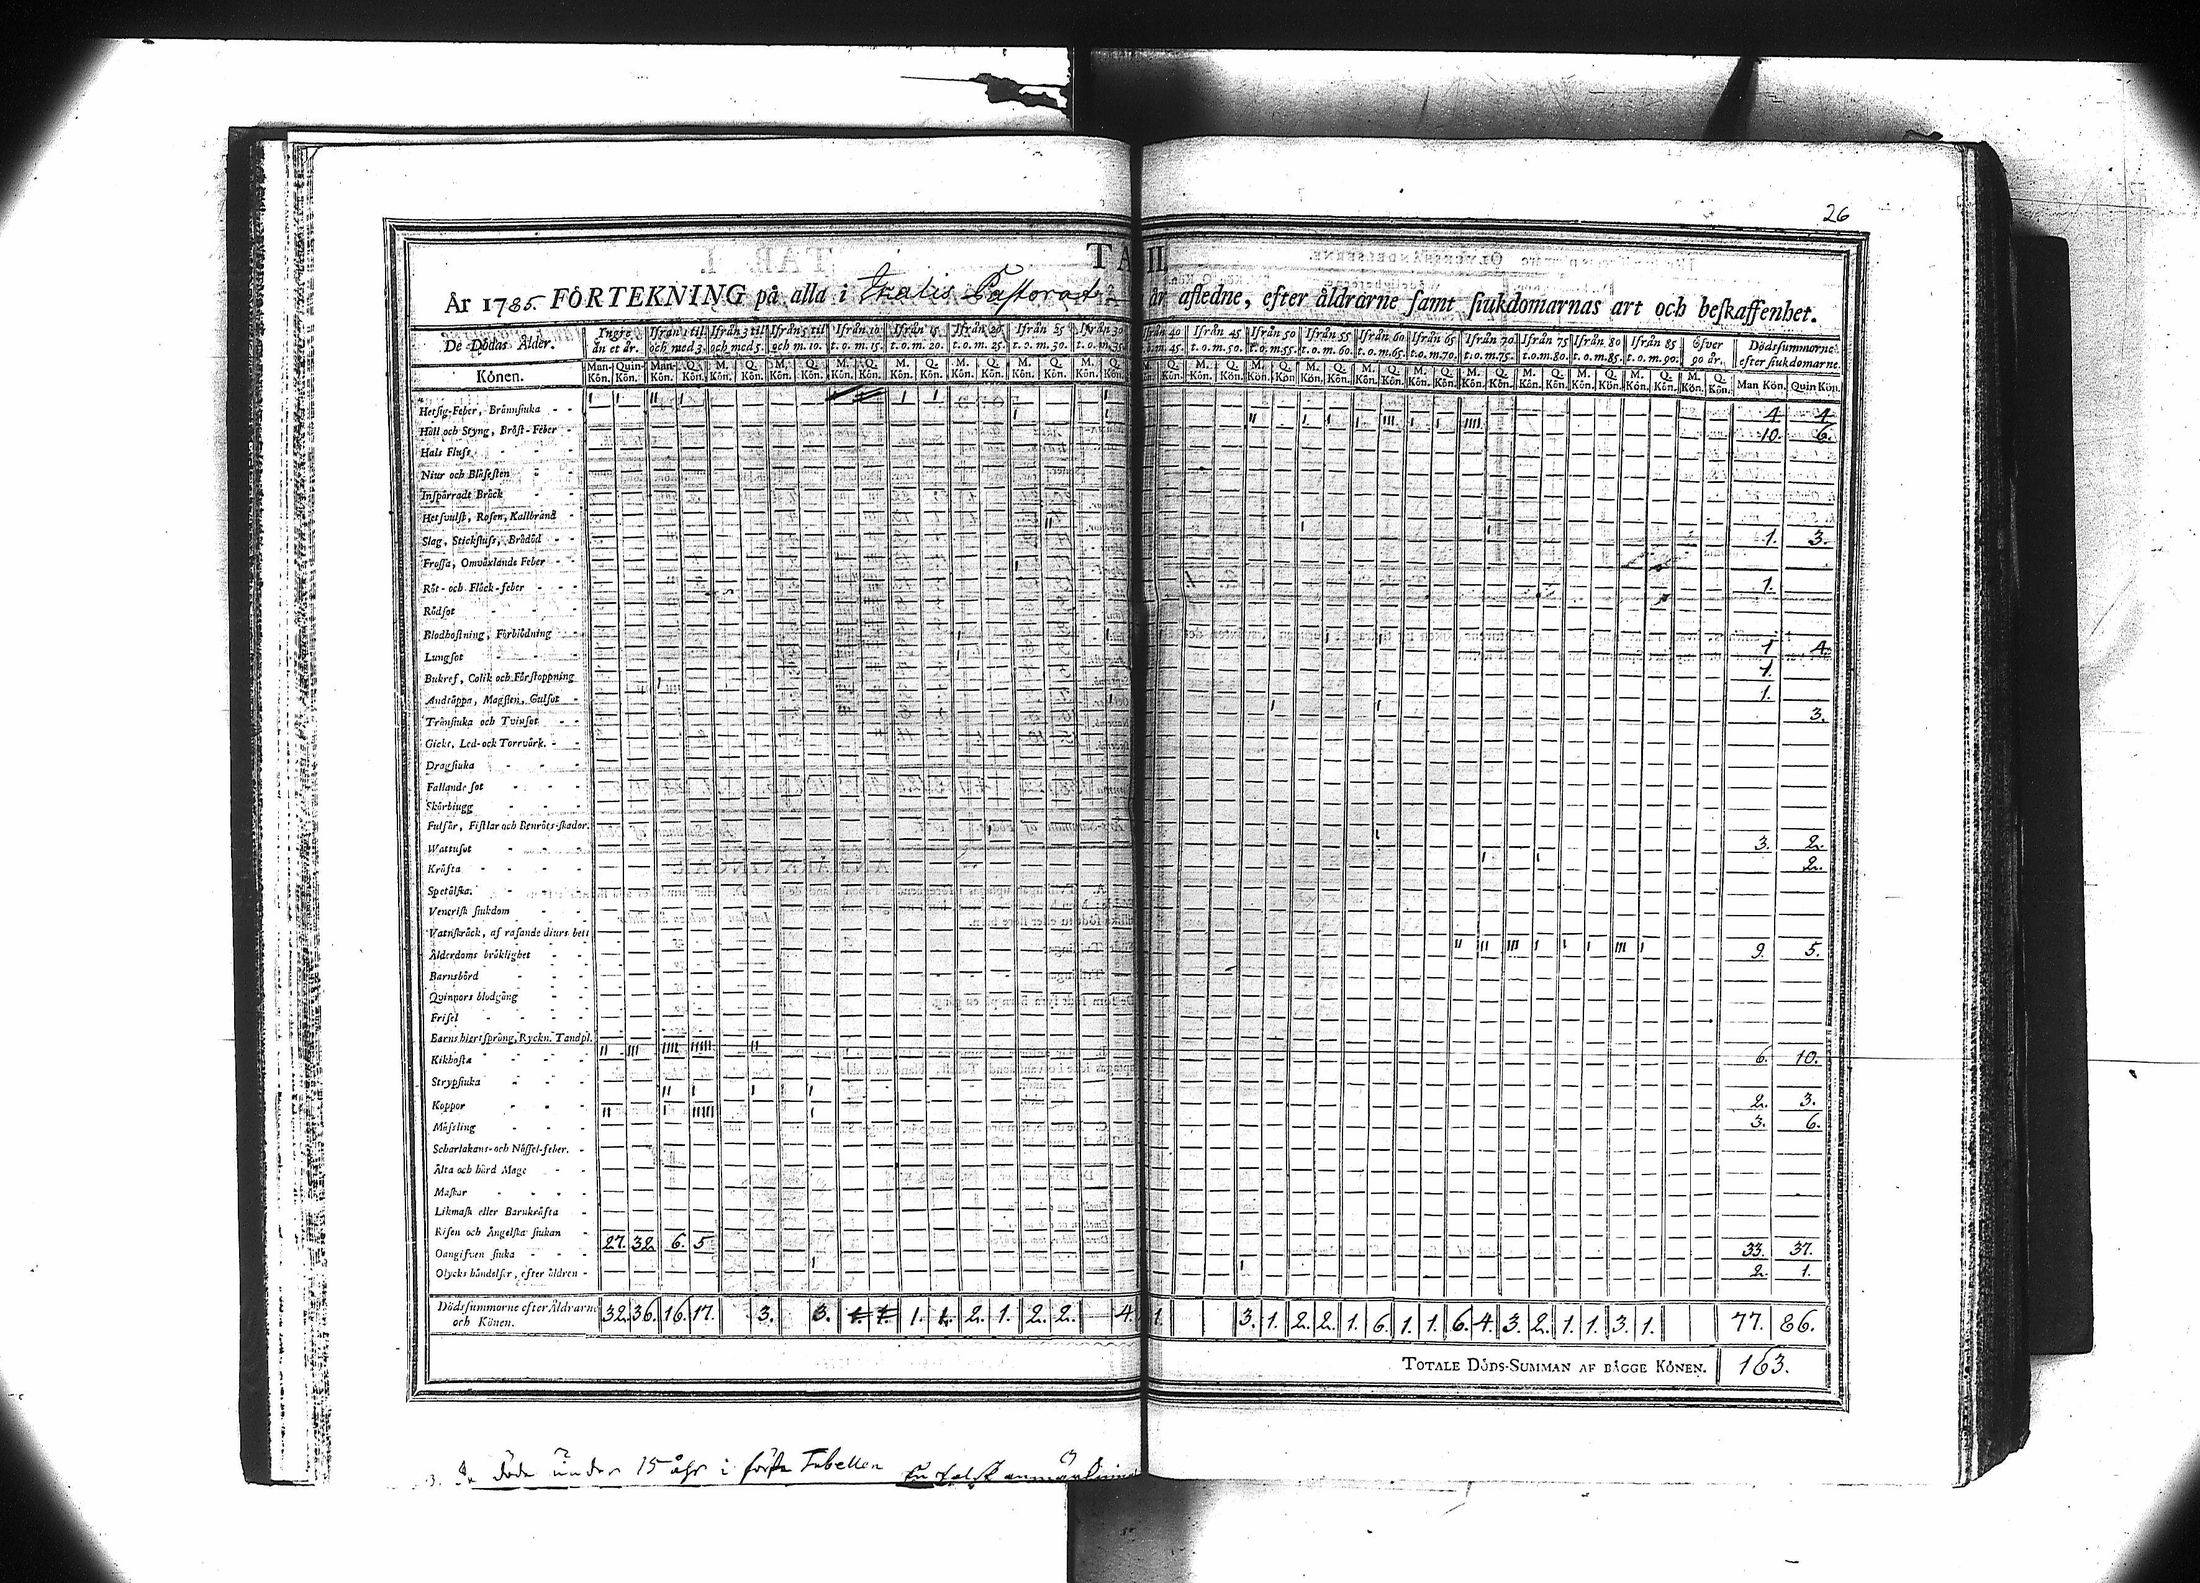 26
TAB. II.
År 1785. FÖRTEKNING på alla i Ikalis Pastorat år afledne, efter åldrarne samt siukdomarnas art och beskaffenhet.
De Dödas Ålder. Ingre än et år. Ifrån 1 til och med 3. Ifrån 3 til och med 5. Ifrån 5 til och m. 10. Ifrån 10 t. o. m. 15. Ifrån 15 t. o. m. 20. Ifrån 20 t. o. m. 25. Ifrån 25 t. o. m. 30. Ifrån 30 t. o. m. 35. Ifrån 40 t. o. m. 45. Ifrån 45 t. o. m. 50. Ifrån 50 t. o. m. 55. Ifrån 55 t. o. m. 60. Ifrån 60 t. o. m. 65. Ifrån 65 t. o. m. 70. Ifrån 70 t. o. m. 75. Ifrån 75 t. o. m. 80. Ifrån 80 t. o. m. 85. Ifrån 85 t. o. m. 90. Öfver 90 år. Dödssummorne efter siukdomarne.
Könen. Man-Kön. Quin-Kön. Man-Kön. Q. Kön. M. Kön. Q. Kön. M. Kön. Q. Kön. M. Kön. Q. Kön. M. Kön. Q. Kön. M. Kön. Q. Kön. M. Kön. Q. Kön. M. Kön. Q. Kön. M. Kön. Q. Kön. M. Kön. Q. Kön. M. Kön. Q. Kön. M. Kön. Q. Kön. M. Kön. Q. Kön. M. Kön. Q. Kön. M. Kön. Q. Kön. M. Kön. Q. Kön. M. Kön. Q. Kön. M. Kön. Q. Kön. M. Kön. Q. Kön. Man Kön. Quin Kön.
Hetsig-Feber, Brännsiuka I I II I I I I 4 4
Håll och Styng, Bröst-Feber I I II I I I III I I IIII 10. 6.
Hals Fluss
Niur och Blåsesten
Inspärradt Bråck
Hetsvulst, Rosen, Kallbrand
Slag, Stickfluss, Brådöd II I I 1. 3.
Frossa, Omväxlande Feber
Röt- och Fläck-feber I 1.
Rödsot
Blodhostning, Förblödning I I I I 1 4.
Lungsot I 1.
Bukref, Colik och Förstoppning I 1.
Andtäppa, Magsten, Gulsot I I I 3.
Trånsiuka och Tvinsot
Gickt, Led- och Torrvärk.
Dragsiuka
Fallande sot
Skörbiugg
Fulsår, Fistlar och Benröts-skador.
Wattusot I 3. 2.
Kräfta I I 2.
Spetälska.
Venerisk siukdom
Vatnskräck, af rasande diurs bett
Ålderdoms bräklighet II II III I I I III I 9. 5.
Barnsbörd
Quinnors blodgång
Frisel
Barns hiertsprång, Ryckn. Tandpl.
Kikhosta II III IIII IIIII II 6. 10.
Strypsiuka
Koppor II I I I 2. 3.
Mässling II I IIIII I 3. 6.
Scharlakans- och Nässel-feber.
Älta och hård Mage
Maskar
Likmask eller Barnkräfta
Risen och Ängelska siukan
Oangifven siuka 27. 32 6. 5 33. 37.
Olycks händelser, efter åldren I I 2 1.
Dödssummorne efter Åldrarne och Könen. 32. 36. 16. 17. 3. 3. 1. 1. 1. 1. 2. 1. 2. 2. 4. 1. 3. 1. 2. 2. 1. 6. 1. 1. 6. 4. 3. 2. 1. 1. 3. 1. 77. 86.
TOTALE DÖDS-SUMMAN AF BÄGGE KÖNEN. 163.
döda under 15 åhr i första Tabellen